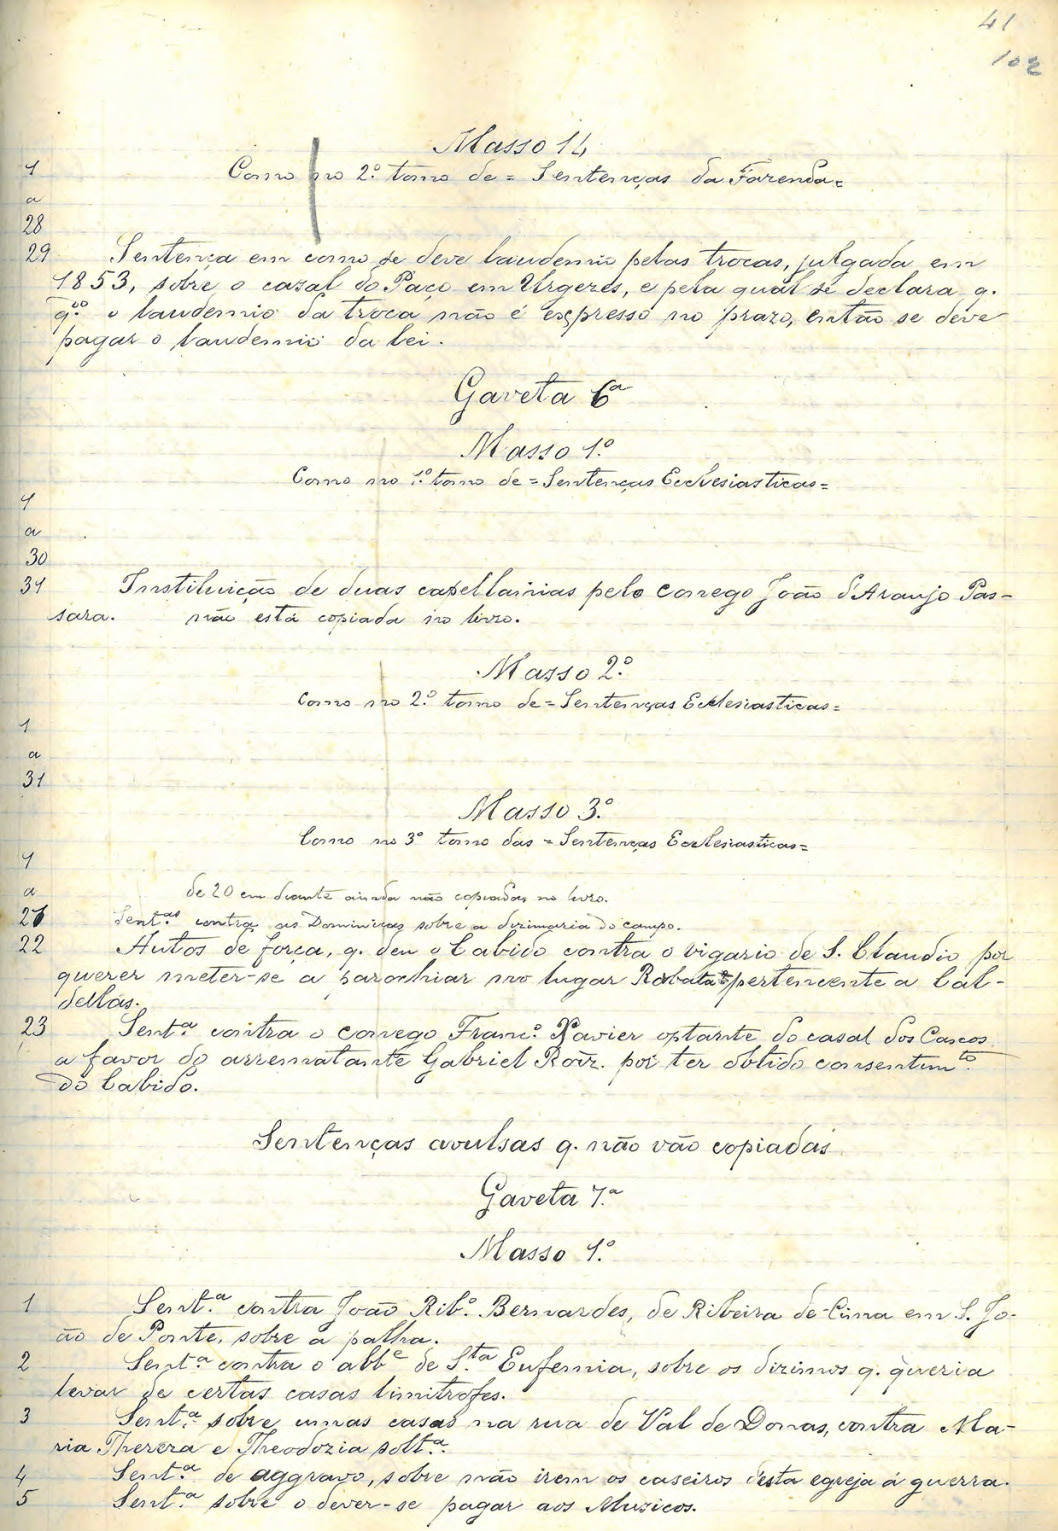 41
102
Masso 14
1 Como no 2.º tomo de = Sentenças da Fazenda =
a
28
29 Sentença em como se deve laudemio pelas trocas, julgada em
1853, sobre o casal do Paço em Urgezes, e pela qual se declara q.
q.do o laudemio da troca não é expresso no prazo, então se deve
pagar o laudemio da lei.
Gaveta 6ª
Masso 1.º
Como no 1.º tomo de = Sentenças Ecclesiasticas =
1
a
30
31 Instituição de duas capellainias pelo conego João d'Araujo Pas-
sara. não está copiada no livro.
Masso 2.º
Como no 2.º tomo de = Sentenças Ecclesiasticas =
1
a
31
Masso 3.º
Como no 3º tomo das = Sentenças Ecclesiasticas =
1
a de 20 em diante ainda não copiadas no livro.
21 Sent.as contra as Dominicas sobre a dizimaria do campo.
22 Autos de força, q. deu o Cabido contra o vigario de S. Claudio por
querer meter-se a parochiar no lugar pertencente a Cal-
dellas.
23 Sent.ª contra o conego Franc.º Xavier optante do casal dos Cascos
a favor do arrematante Gabriel Roiz. por ter obtido consentim.to
do Cabido.
Sentenças avulsas q. não vão copiadas
Gaveta 7.ª
Masso 1.º
1 Sent.ª contra João Rib.º Bernardes, de Ribeira de-Cima em S. Jo-
ão de Ponte, sobre a palha.
2 Sent.ª contra o abb.e de S.ta Eufemia, sobre os dizimos q. queria
levar de certas casas limitrofes.
3 Sent.ª sobre umas casas na rua de Val de Donas, contra Ma-
ria Thereza e Theodozia solt.ª
4 Sent.ª de aggravo, sobre não irem os caseiros desta egreja á guerra.
5 Sent.ª sobre o dever-se pagar aos Muzicos.